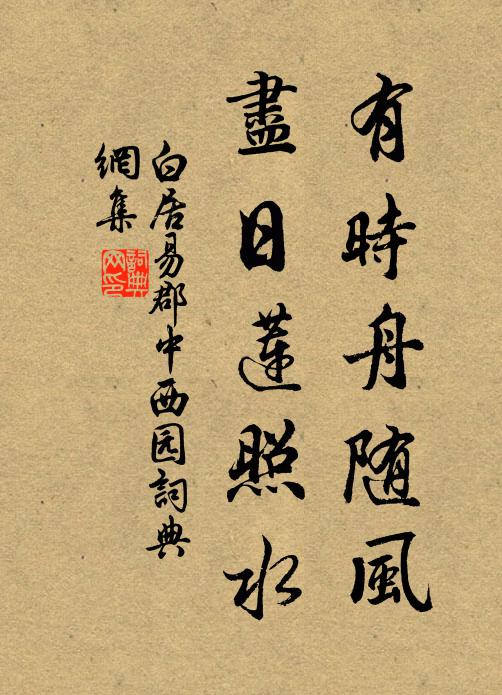 有時舟随風
盡日蓮照水
白居易郡中西园詞典
網集
詞典
网印